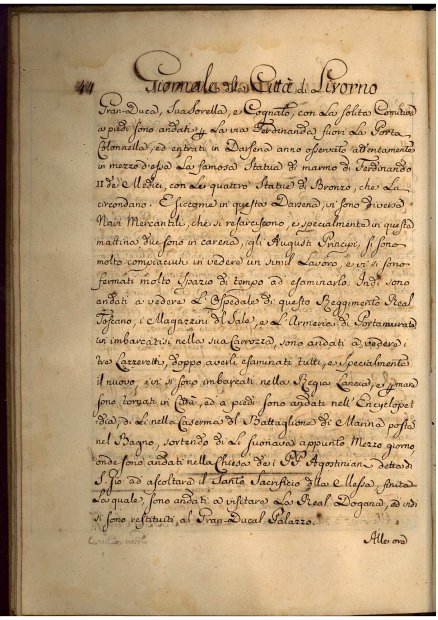 44 Giornale della Città di Livorno
Gran-Duca, Sua Sorella, e Cognato, con La solita Comitiva
a piedi sono andati p La via Ferdinanda fuori La Porta
Colonnella, ed entrati in Darsena anno osservato attentamente
in mezzo d'essa La famosa Statua di marmo di Ferdinando
II de Medici, con Le quattro Statue di Bronzo, che La
circondano: E siccome in questa Darsena, vi sono diverse
Navi Mercantili, che si resarciscono, e specialmente in questa
mattina due sono in carena, gli Augusti Principi, si sono
molto compiaciuti in vedere un simil Lavoro, e vi si sono
fermati molto Spazio di tempo ad esaminarlo. Indi sono
andati a vedere L'Ospedale di questo Reggimento Real
Toscano, i Magazzini del Sale, e L'Armeria di Portamurata
ivi imbarcatisi nella sua Carrozza, sono andati a vedere i
tre Lazzeretti, doppo averli esaminati tutti, e specialmente
il nuovo, ivi si sono imbarcati nella Regia Lancia, e p mare
sono tornati in Città, ed a piedi sono andati nell'Encyclope
dia, di Lì nella Caserma del Battaglione di Marina posta
nel Bagno, sortendo di Lì suonava appunto Mezzo giorno
onde sono andati nella Chiesa dei PP. Agostiniani detta di
S. Gio: ad ascoltare il Santo Sacrifizio della Messa, finita
La quale, sono andati a visitare La Real Dogana, ed indi
si sono restituiti, al Gran-Ducal Palazzo.
Alle ore